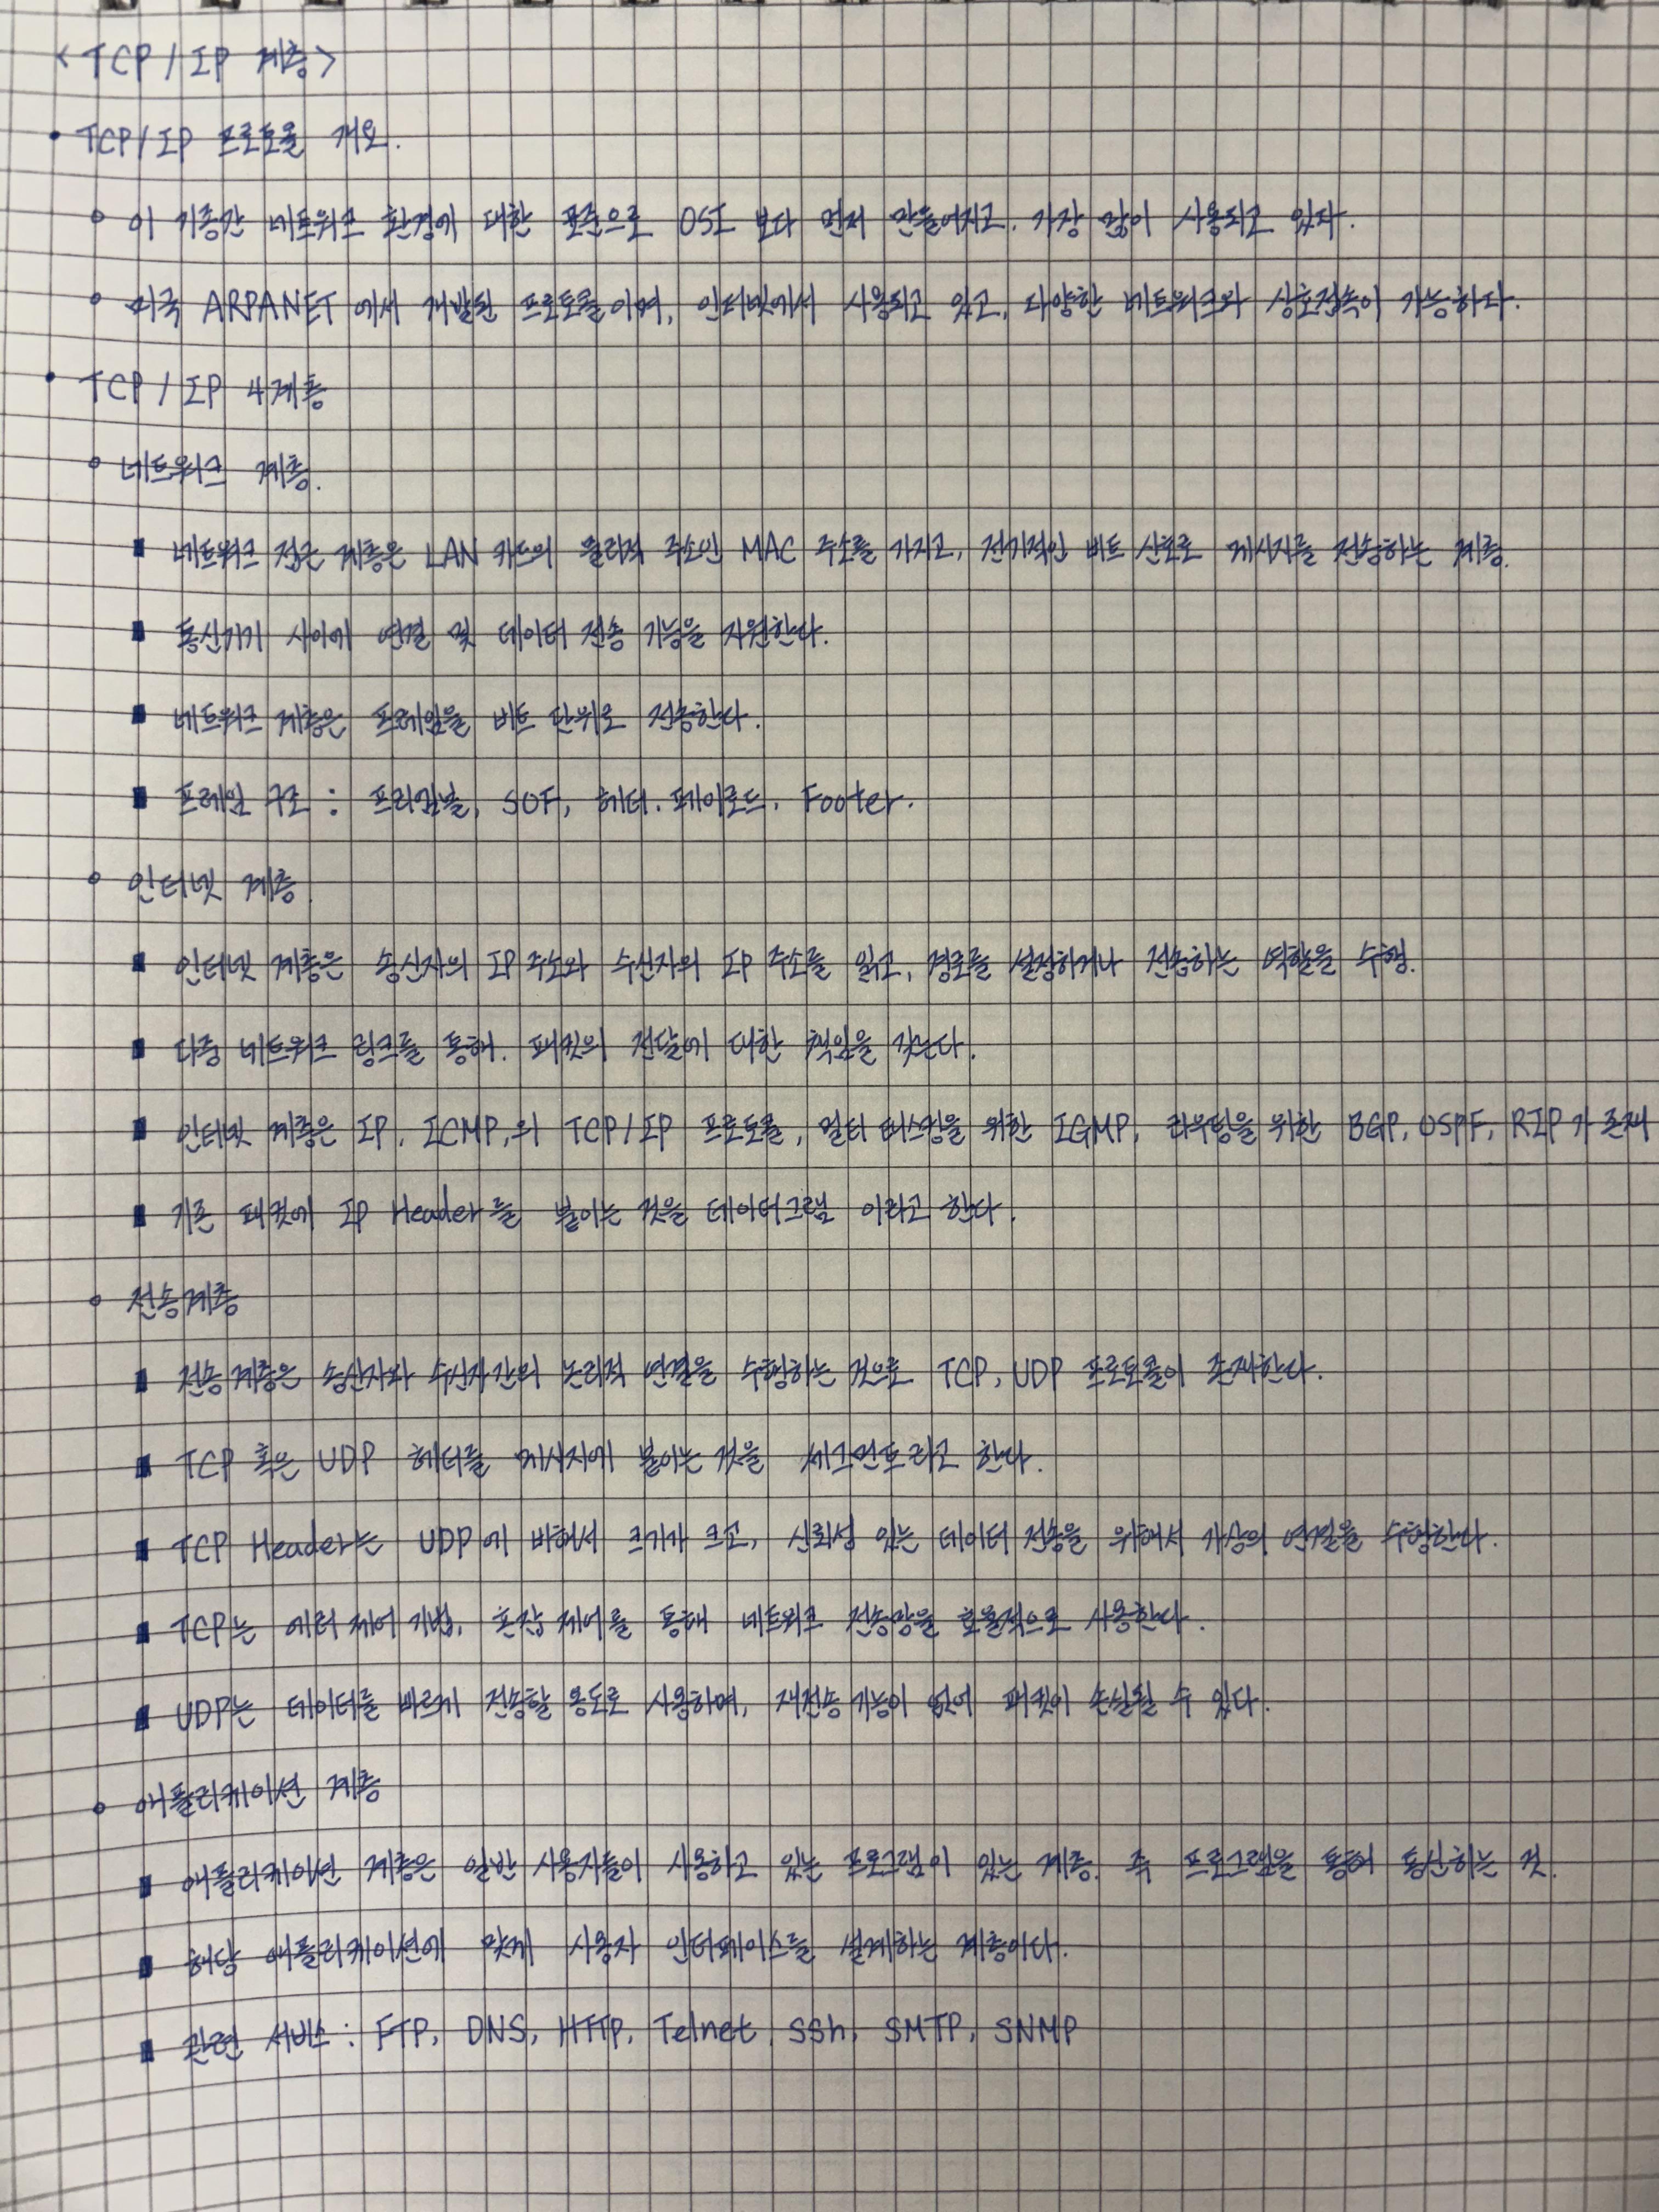 <TCP/IP 계층>
• TCP/IP 프로토콜 개요.
∘ 이 기종간 네트워크 환경에 대한 표준으로 OSI 보다 먼저 만들어지고, 가장 많이 사용되고 있다.
∘ 미국 ARPANET에서 개발된 프로토콜이며, 인터넷에서 사용되고 있고, 다양한 네트워크와 상호접속이 가능하다.
• TCP/IP 4계층
∘ 네트워크 계층.
▪ 네트워크 접근 계층은 LAN 카드의 물리적 주소인 MAC 주소를 가지고, 전기적인 비트 신호로 메시지를 전송하는 계층.
▪ 통신기기 사이에 연결 및 데이터 전송 기능을 지원한다.
▪ 네트워크 계층은 프레임을 비트 단위로 전송한다.
▪ 프레임 구조 : 프리앰블, SOF, 헤더, 페이로드, Footer.
∘ 인터넷 계층.
▪ 인터넷 계층은 송신자의 IP주소와 수신자의 IP 주소를 읽고, 경로를 설정하거나 전송하는 역할을 수행.
▪ 다중 네트워크 링크를 통해, 패킷의 전달에 대한 책임을 갖는다.
▪ 인터넷 계층은 IP, ICMP,의 TCP/IP 프로토콜, 멀티 캐스팅을 위한 IGMP, 라우팅을 위한 BGP, OSPF, RIP가 존재
▪ 기존 패킷에 IP Header를 붙이는 것을 데이터그램 이라고 한다.
∘ 전송계층
▪ 전송 계층은 송신자와 수신자 간의 논리적 연결을 수행하는 것으로 TCP, UDP 프로토콜이 존재한다.
▪ TCP 혹은 UDP 헤더를 메시지에 붙이는 것을 세그먼트라고 한다.
▪ TCP Header는 UDP에 비해서 크기가 크고, 신뢰성 있는 데이터 전송을 위해서 가상의 연결을 수행한다.
▪ TCP는 에러 제어 기법, 혼잡 제어를 통해 네트워크 전송망을 효율적으로 사용한다.
▪ UDP는 데이터를 빠르게 전송할 용도로 사용하며, 재전송 기능이 없어 패킷이 손실될 수 있다.
∘ 애플리케이션 계층
▪ 애플리케이션 계층은 일반 사용자들이 사용하고 있는 프로그램이 있는 계층. 즉 프로그램을 통해 통신하는 것.
▪ 해당 애플리케이션에 맞게 사용자 인터페이스를 설계하는 계층이다.
▪ 관련 서비스 : FTP, DNS, HTTP, Telnet, SSh, SMTP, SNMP